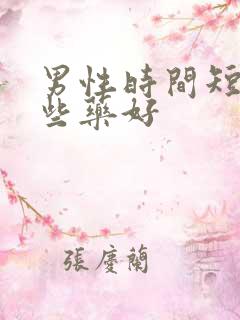 男性時間短
些藥好
張慶蘭